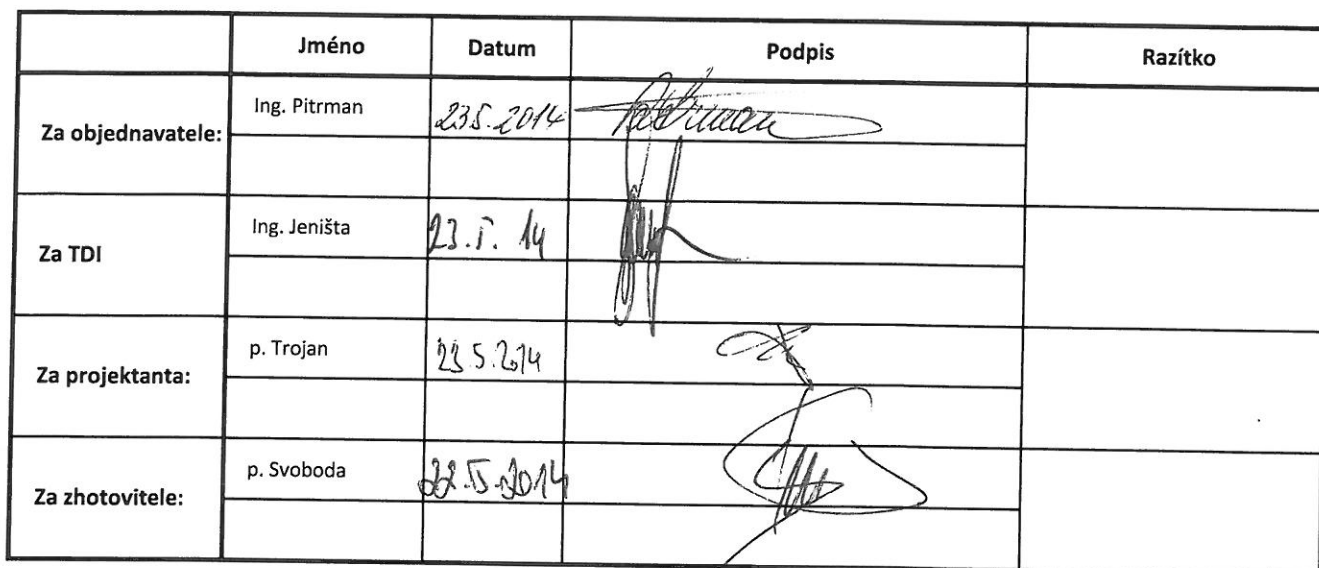 Jméno Datum Podpis Razítko
Za objednavatele: Ing. Pitrman 23.5.2014 Pitrman
Za TDI Ing. Jeništa 23.5. 14
Za projektanta: p. Trojan 23.5.2014
Za zhotovitele: p. Svoboda 22.5.2014